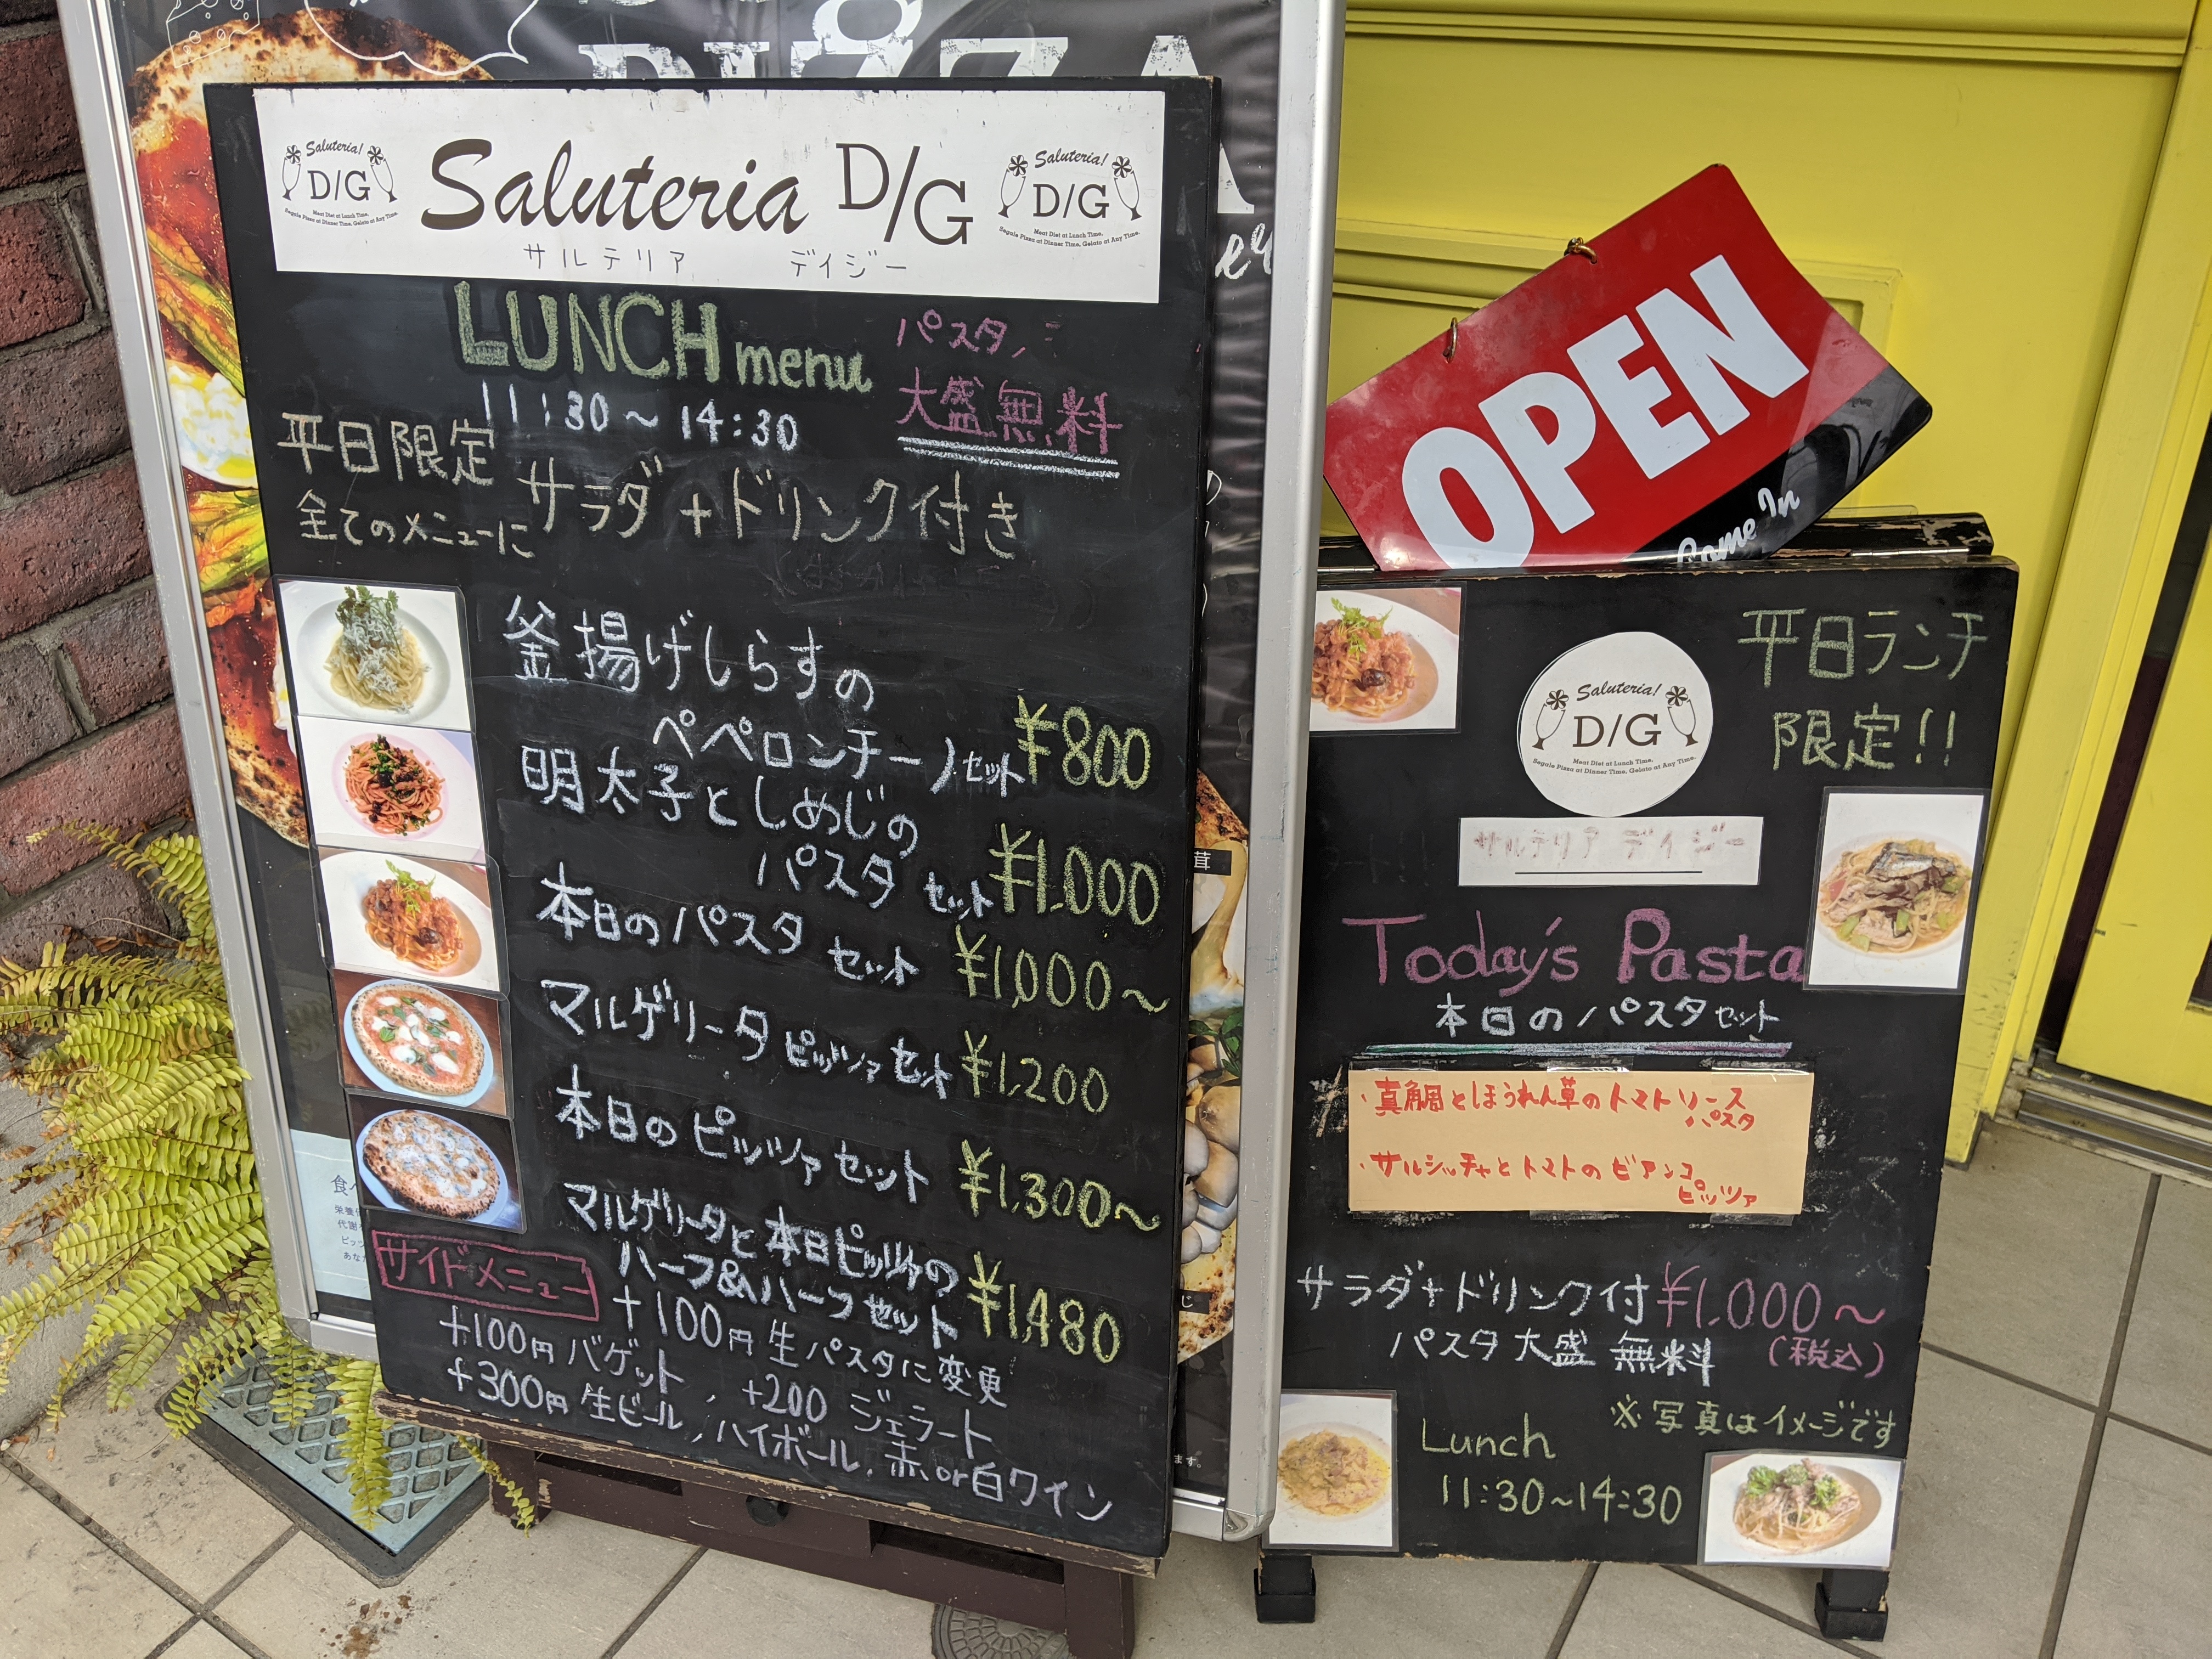 PIZZA
Saluteria!
D/G
Meat Diet at Lunch Time,
Segale Pizza at Dinner Time, Gelato at Any Time.
Saluteria D/G
サルテリア デイジー
Saluteria!
D/G
Meat Diet at Lunch Time,
Segale Pizza at Dinner Time, Gelato at Any Time.
LUNCH menu
11:30~14:30
パスタ
大盛無料
平日限定
全てのメニューに サラダ+ドリンク付き
釜揚げしらすの
ペペロンチーノセット ¥800
明太子としめじの
パスタ セット ¥1,000
本日のパスタ セット ¥1,000~
マルゲリータピッツァセット ¥1,200
本日のピッツァセット ¥1,300~
マルゲリータと本日ピッツァの
ハーフ&ハーフセット ¥1,480
サイドメニュー
+100円 生パスタに変更
+100円 バゲット, +200 ジェラート
+300円 生ビール, ハイボール, 赤or白ワイン
OPEN
Come In
平日ランチ
限定!!
Saluteria!
D/G
Meat Diet at Lunch Time,
Segale Pizza at Dinner Time, Gelato at Any Time.
サルテリア デイジー
Today's Pasta
本日のパスタセット
・真鯛とほうれん草のトマトソース
パスタ
・サルシッチャとトマトのビアンコ
ピッツァ
サラダ+ドリンク付 ¥1,000~
パスタ大盛 無料 (税込)
※写真はイメージです
Lunch
11:30~14:30